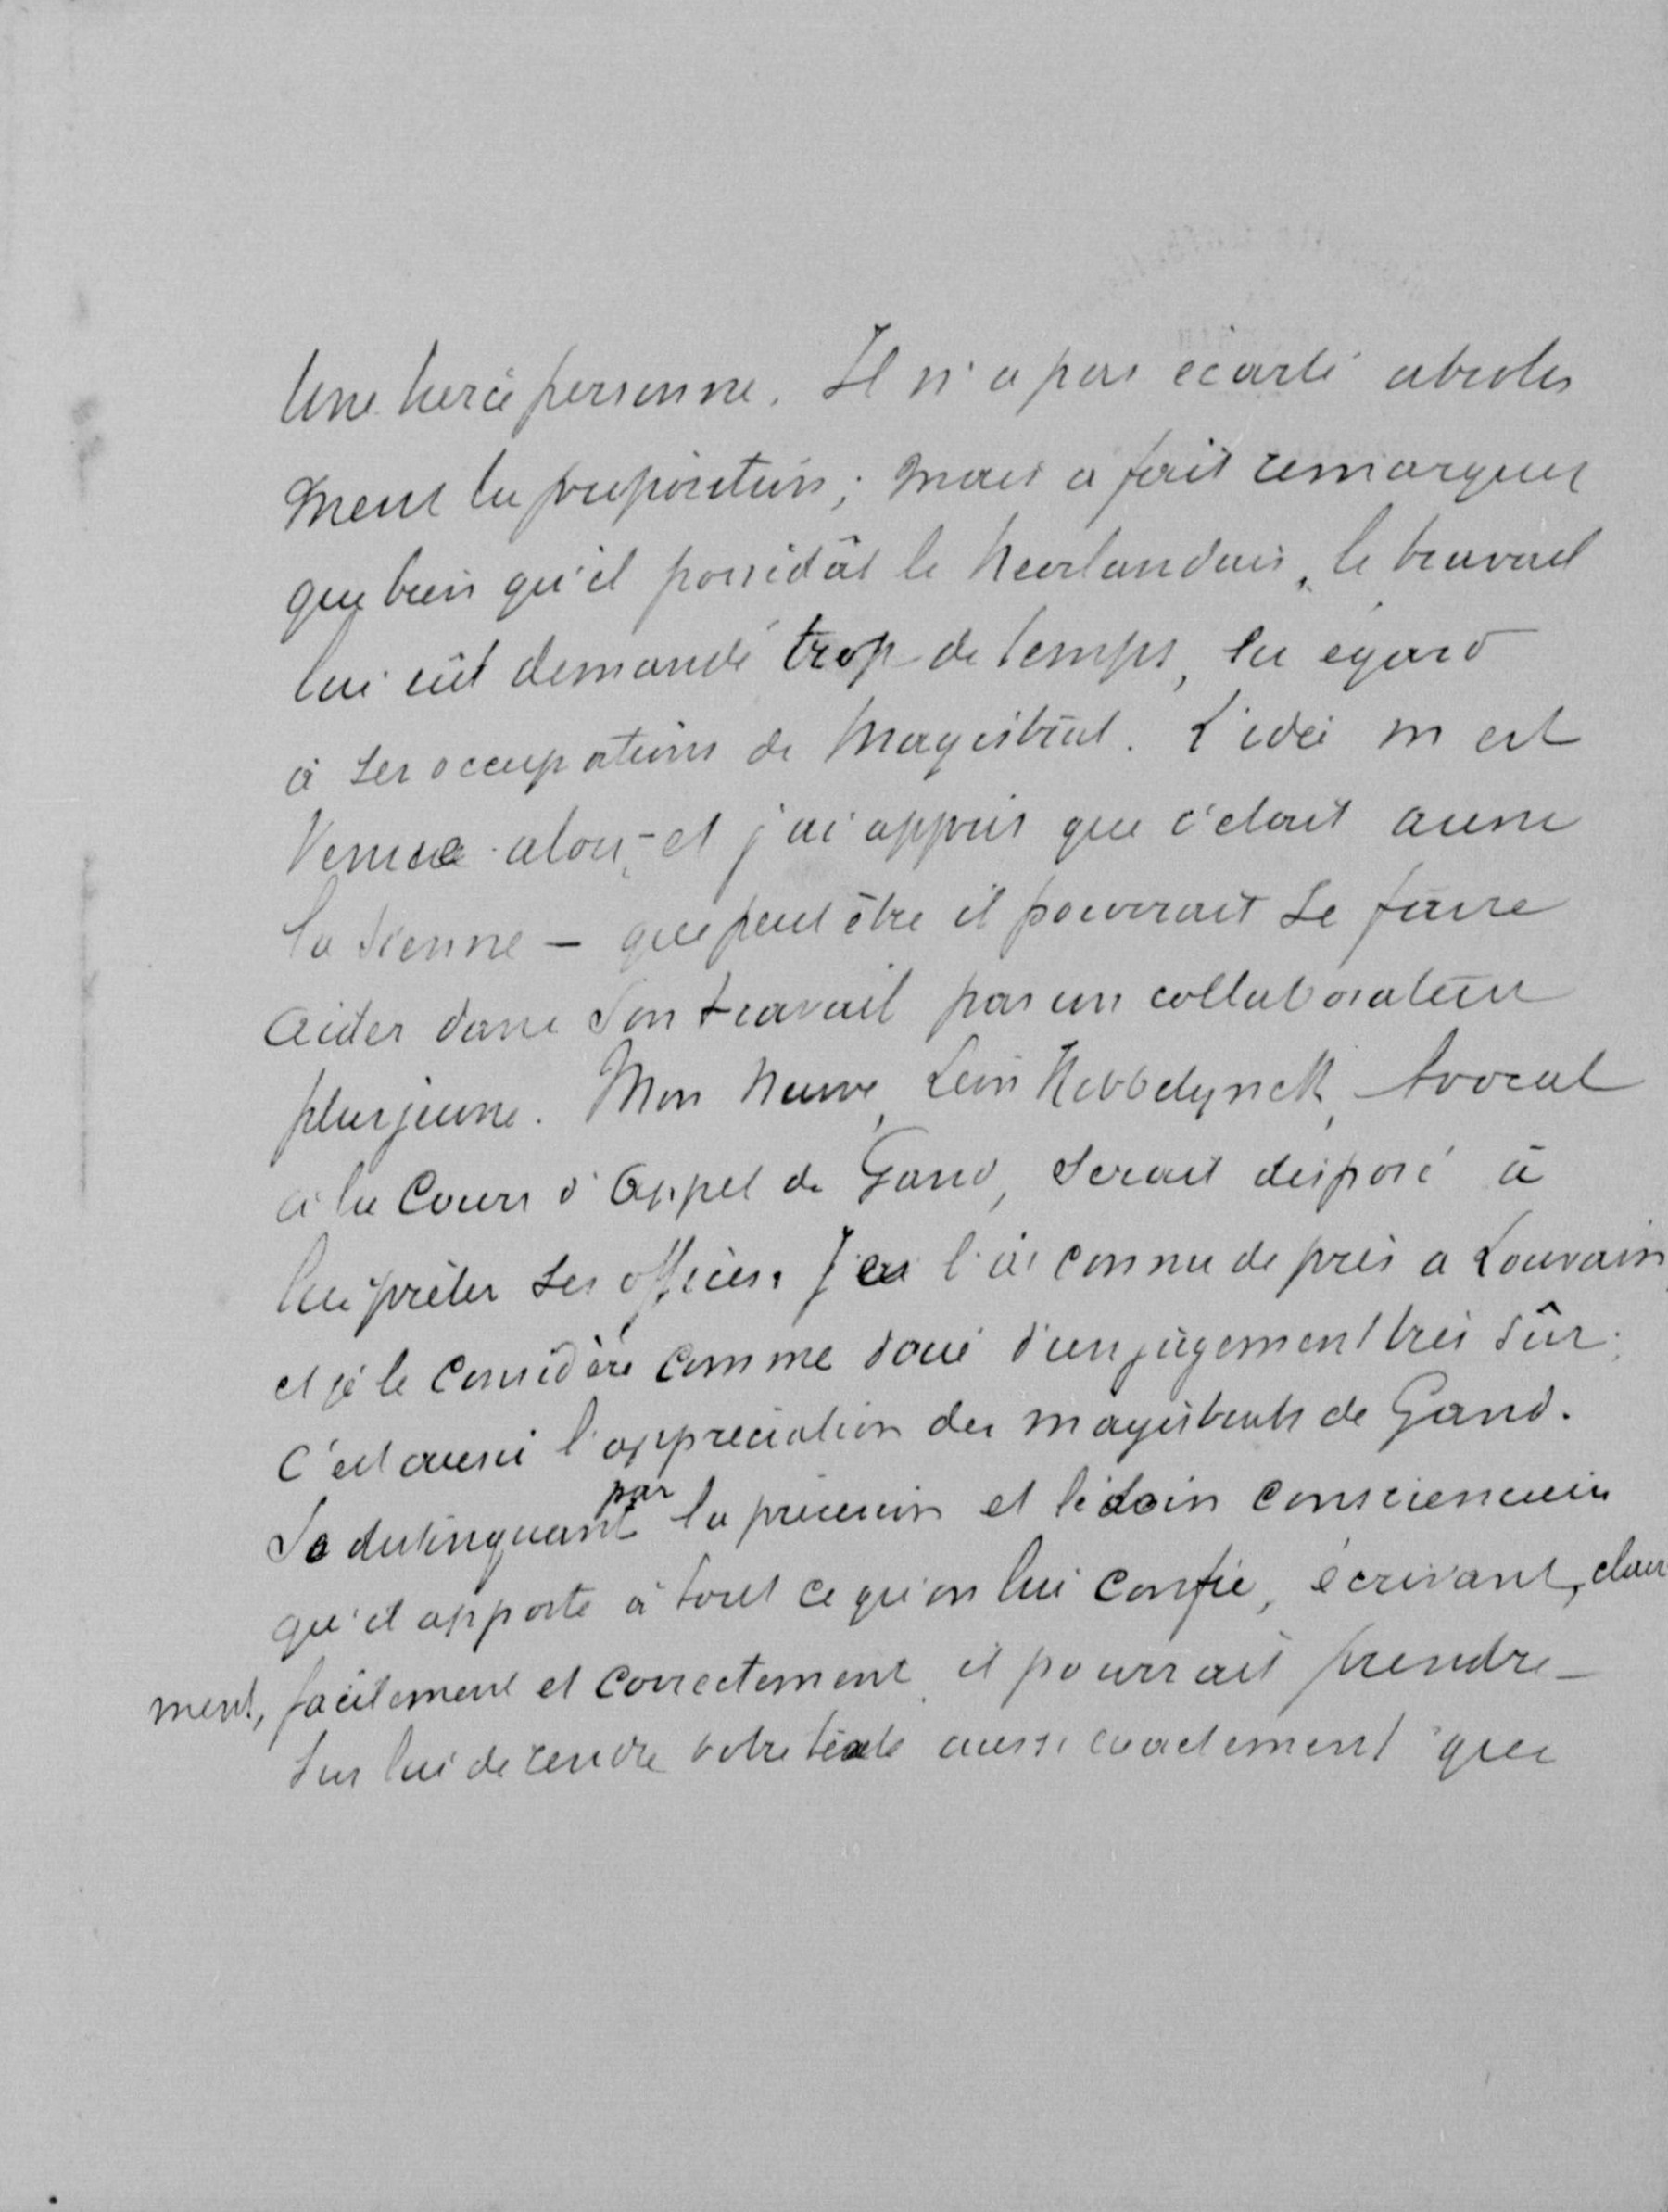 Une tierce personne. Il n'a pas écarté absolu
ment la proposition; mais a fait remarquer
que bien qu'il possédât le Neerlandais, le travail
lui eût demandé trop de temps, eu egard
à ses occupations de Magistrat. L'idée m'est
Venue alors, - et j'ai appris que c'était aussi
la sienne - que peut être il pourrait se faire
aider dans son travail par un collaborateur
plus jeune. Mon neveu, Léon Hebbelynck, Avocat
à la Cour d'Appel de Gand, serait disposé à
lui prêter ses offices. Je l'ai connu de près a Louvain
et je le considère comme doué d'un jugement très sûr;
c'est aussi l'appréciation des magistrats de Gand.
Se distinguant par la précision et le soin consciencieux
qu'il apporte à tout ce qu'on lui confie, écrivant, claire
ment, facilement et correctement, il pourrait prendre
sur lui de rendre votre texte aussi exactement que